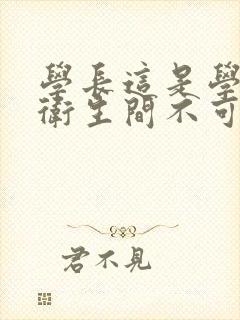 學長這是學
衛生間不可
君不見